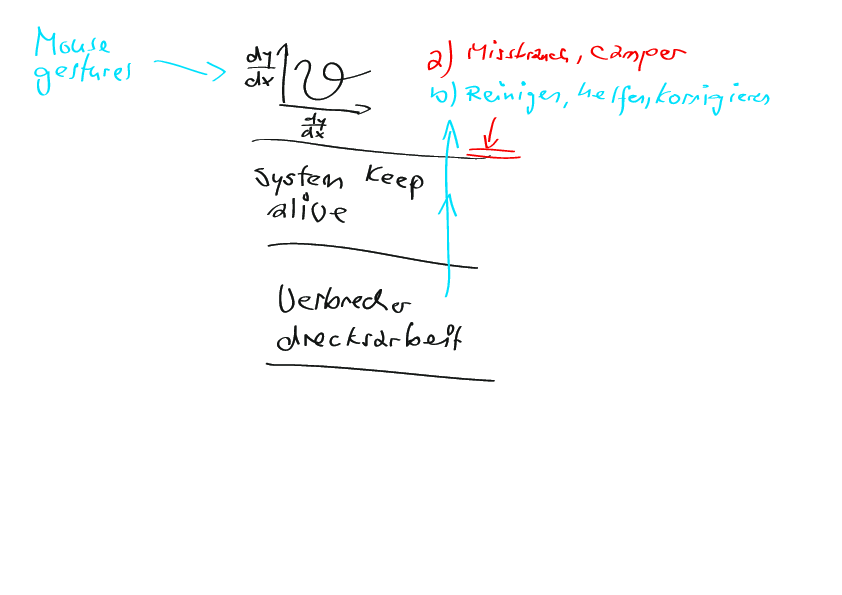 Mouse
gestures
dy
dx
dy
dx
a) Missbrauch, Camper
b) Reinigen, helfen, korrigieren
System Keep
alive
Verbrecher
drecksarbeit